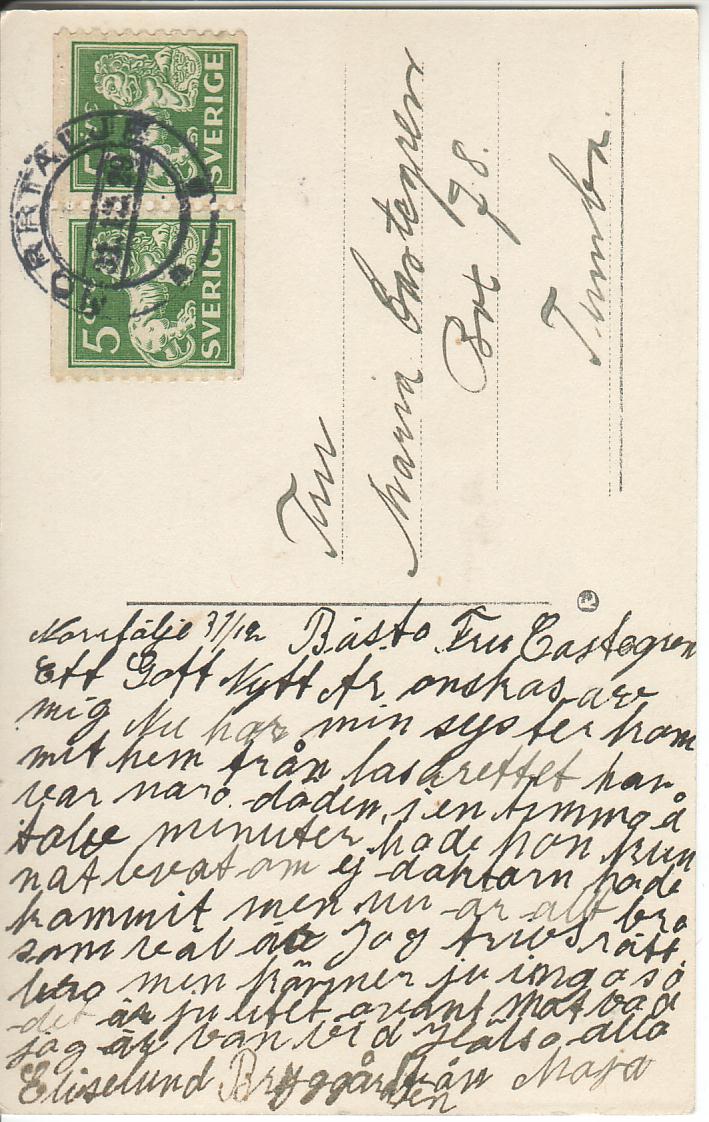 5 öre SVERIGE
5 öre SVERIGE
NORRTÄLJE
31.12.
Fru
Maria Castegren
Box 78.
Tumba.
Norrtälje 31/12 Bästa Fru Castegren
Ett Gott Nytt År onskas av
mig Nu har min syster kom
mit hem från lasarettet hon
var nära döden, i en timme å
tolv minuter hade hon kun
nat levat om ej doktorn hade
kommit men nu är alt bra
som väl är Jag trivs rätt
bra men känner ju inga så
det är ju litet ovant mot vad
jag är van vid Hälsa alla
Eliselund Bryggårds från Maja